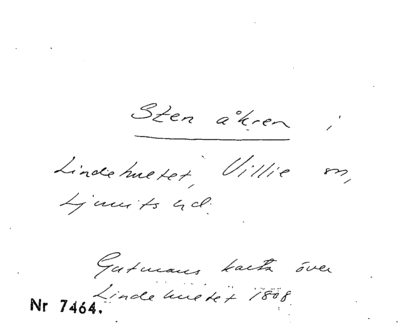 Sten åkren i
Lindehuetet, Villie sn,
Ljunits hd.
Gutmans karta över
Lindehuetet 1808
Nr 7464.